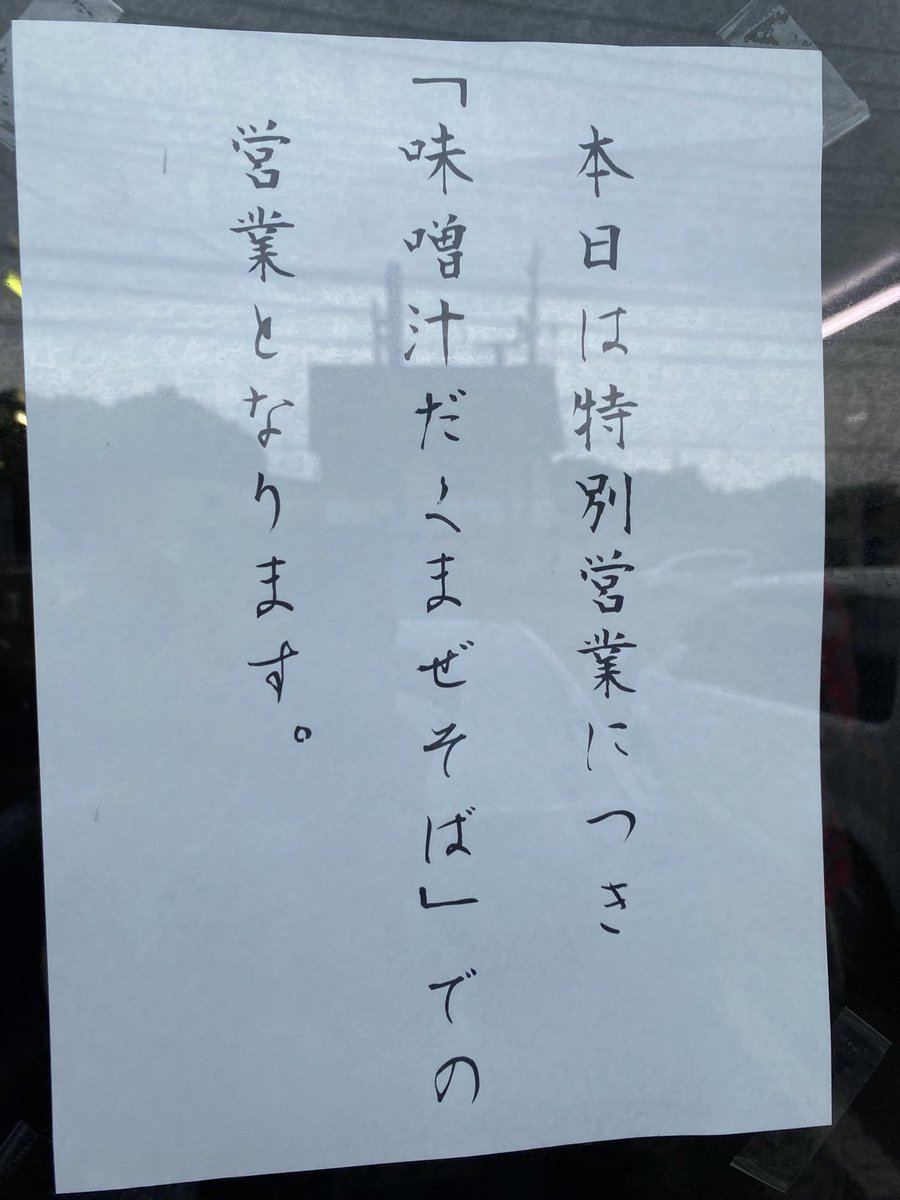 本日は特別営業につき
「味噌汁だくまぜそば」での
営業となります。